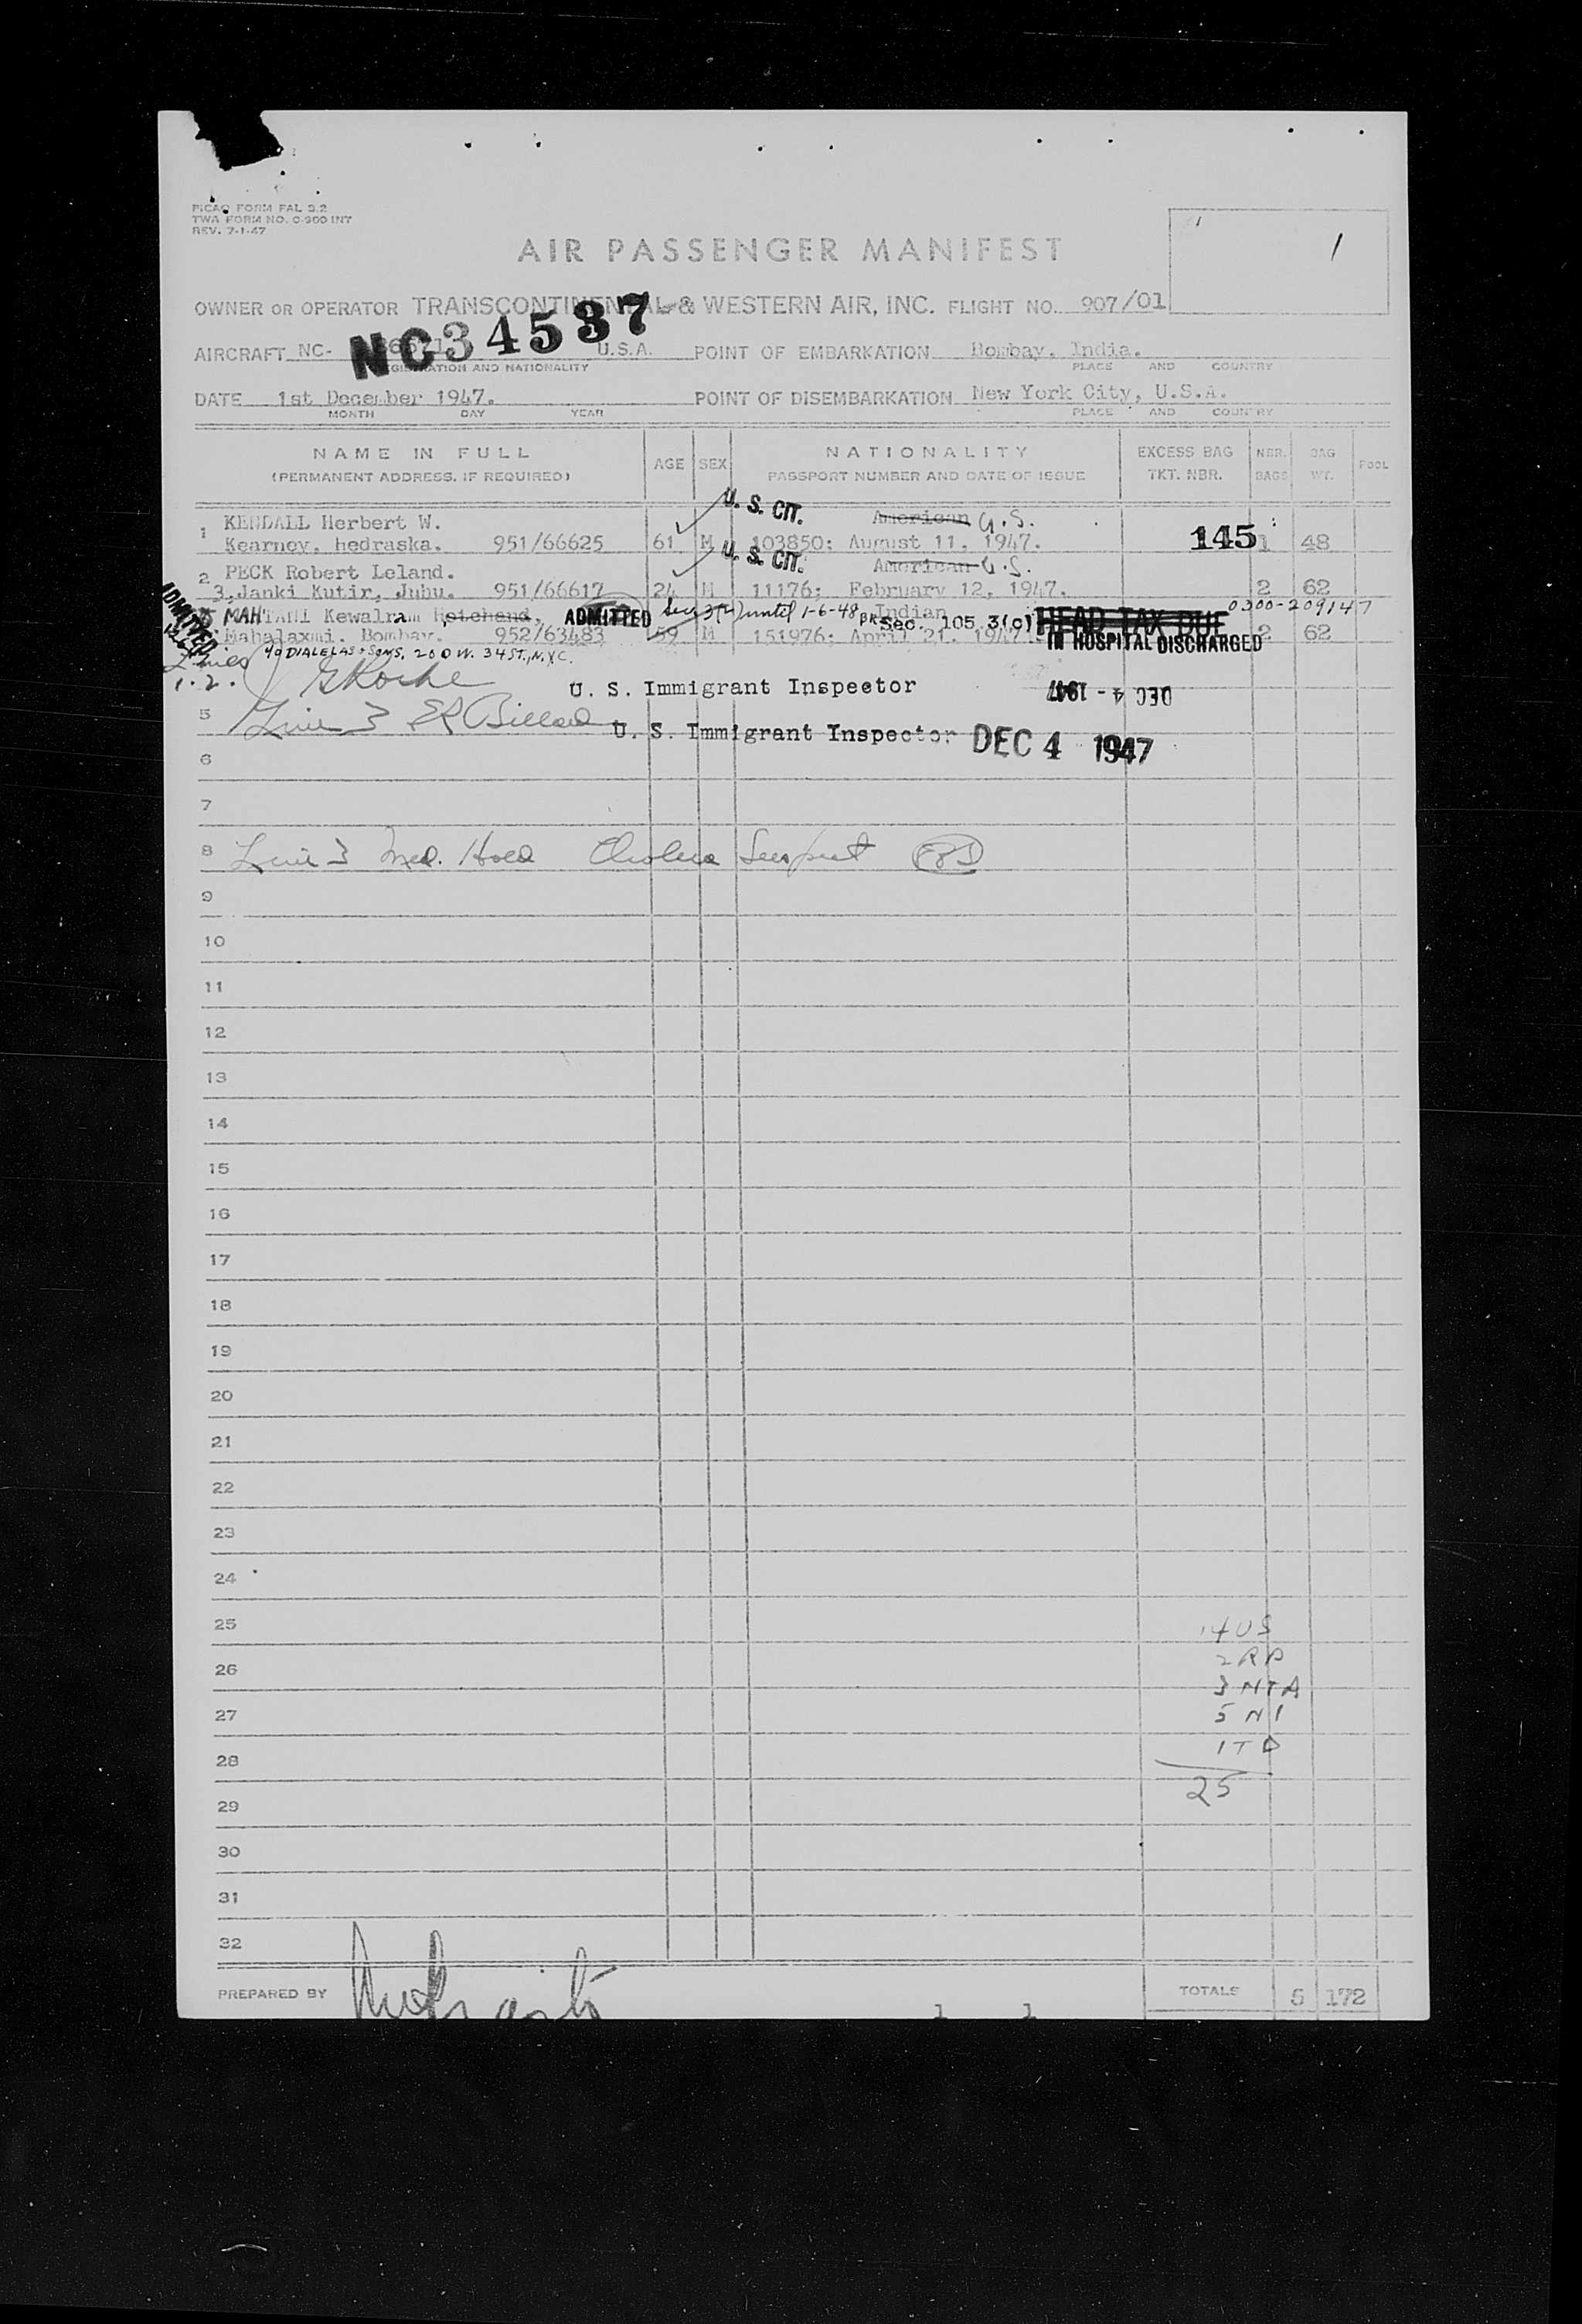 PICAO FORM FAL 2.2
TWA FORM NO. C-900 INT
REV. 7-1-47
1
AIR PASSENGER MANIFEST
OWNER OR OPERATOR TRANSCONTINENTAL & WESTERN AIR, INC. FLIGHT NO. 907/01
NC34537
AIRCRAFT NC- U.S.A. POINT OF EMBARKATION Bombay, India.
REGISTRATION AND NATIONALITY PLACE AND COUNTRY
DATE 1st December 1947. POINT OF DISEMBARKATION New York City, U.S.A.
MONTH DAY YEAR PLACE AND COUNTRY
NAME IN FULL AGE SEX NATIONALITY EXCESS BAG NBR. BAG POOL
(PERMANENT ADDRESS, IF REQUIRED) PASSPORT NUMBER AND DATE OF ISSUE TKT. NBR. BAGS WT.
U. S. CIT.
1 KENDALL Herbert W. American U.S.
Kearney, Hedraska. 951/66625 61 M 103850; August 11, 1947. 145 1 48
U. S. CIT.
2 PECK Robert Leland. American U.S.
3,Janki Kutir, Juhu. 951/66617 24 M 11176; February 12, 1947. 2 62
ADMITTED
MAHTANI Kewalram Hotchand, ADMITTED Sec 3(2) until 1-6-48 Indian Sec. 105.3(c) HEAD TAX DUE 0300-209147
Mahalaxmi, Bombay. 952/63483 59 M 151976; April 21, 1947. IN HOSPITAL DISCHARGED 2 62
c/o DIALELAS + SONS, 200 W. 34 ST., N.Y.C.
Lines
1. 2. U. S. Immigrant Inspector DEC 4 - 1947
5 Line 3 U. S. Immigrant Inspector DEC 4 1947
6
7
8 Line 3 Med. Hold Cholera Suspect
9
10
11
12
13
14
15
16
17
18
19
20
21
22
23
24
25 14 US
26 2 RP
3 NTA
27 5 NI
28 1 TD
29 25
30
31
32
PREPARED BY TOTALS 5 172